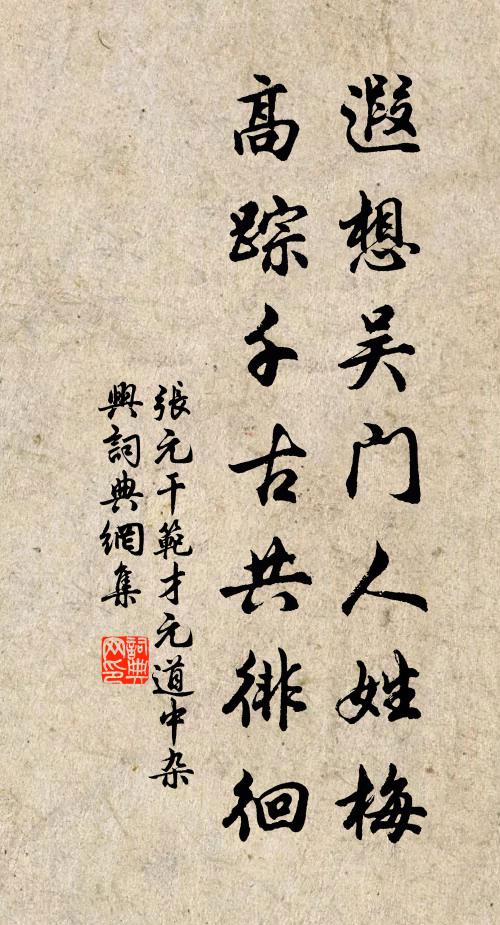 遐想吴门人姓梅
高踪千古共徘徊
張元干範才元道中杂
興詞典網集
詞典
网印